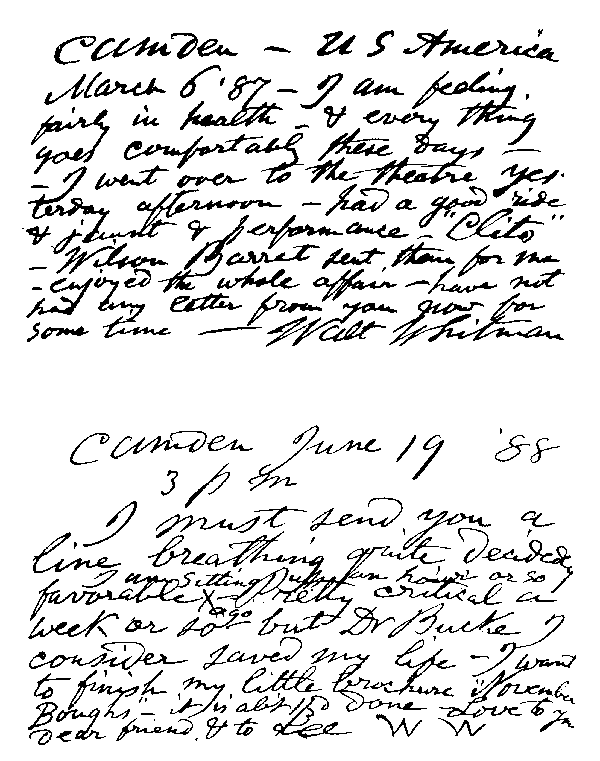 Camden – U S America
March 6 '87 – I am feeling
fairly in health – & every thing
goes comfortably these days –
– I went over to the theatre yes-
terday afternoon – had a good ride
& jaunt & performance – "Clito"
– Wilson Barret sent them for me
– enjoyed the whole affair – have not
had any letter from you now for
some time — Walt Whitman
Camden June 19 '88
3 p m
I must send you a
line breathing quite decidedly
I am sitting up an hour or so
favorable x – Pretty critical a
week or so ago but Dr Bucke I
consider saved my life – I want
to finish my little brochure "November
Boughs" – it is abt done – Love to you
dear friend & to Lee W W